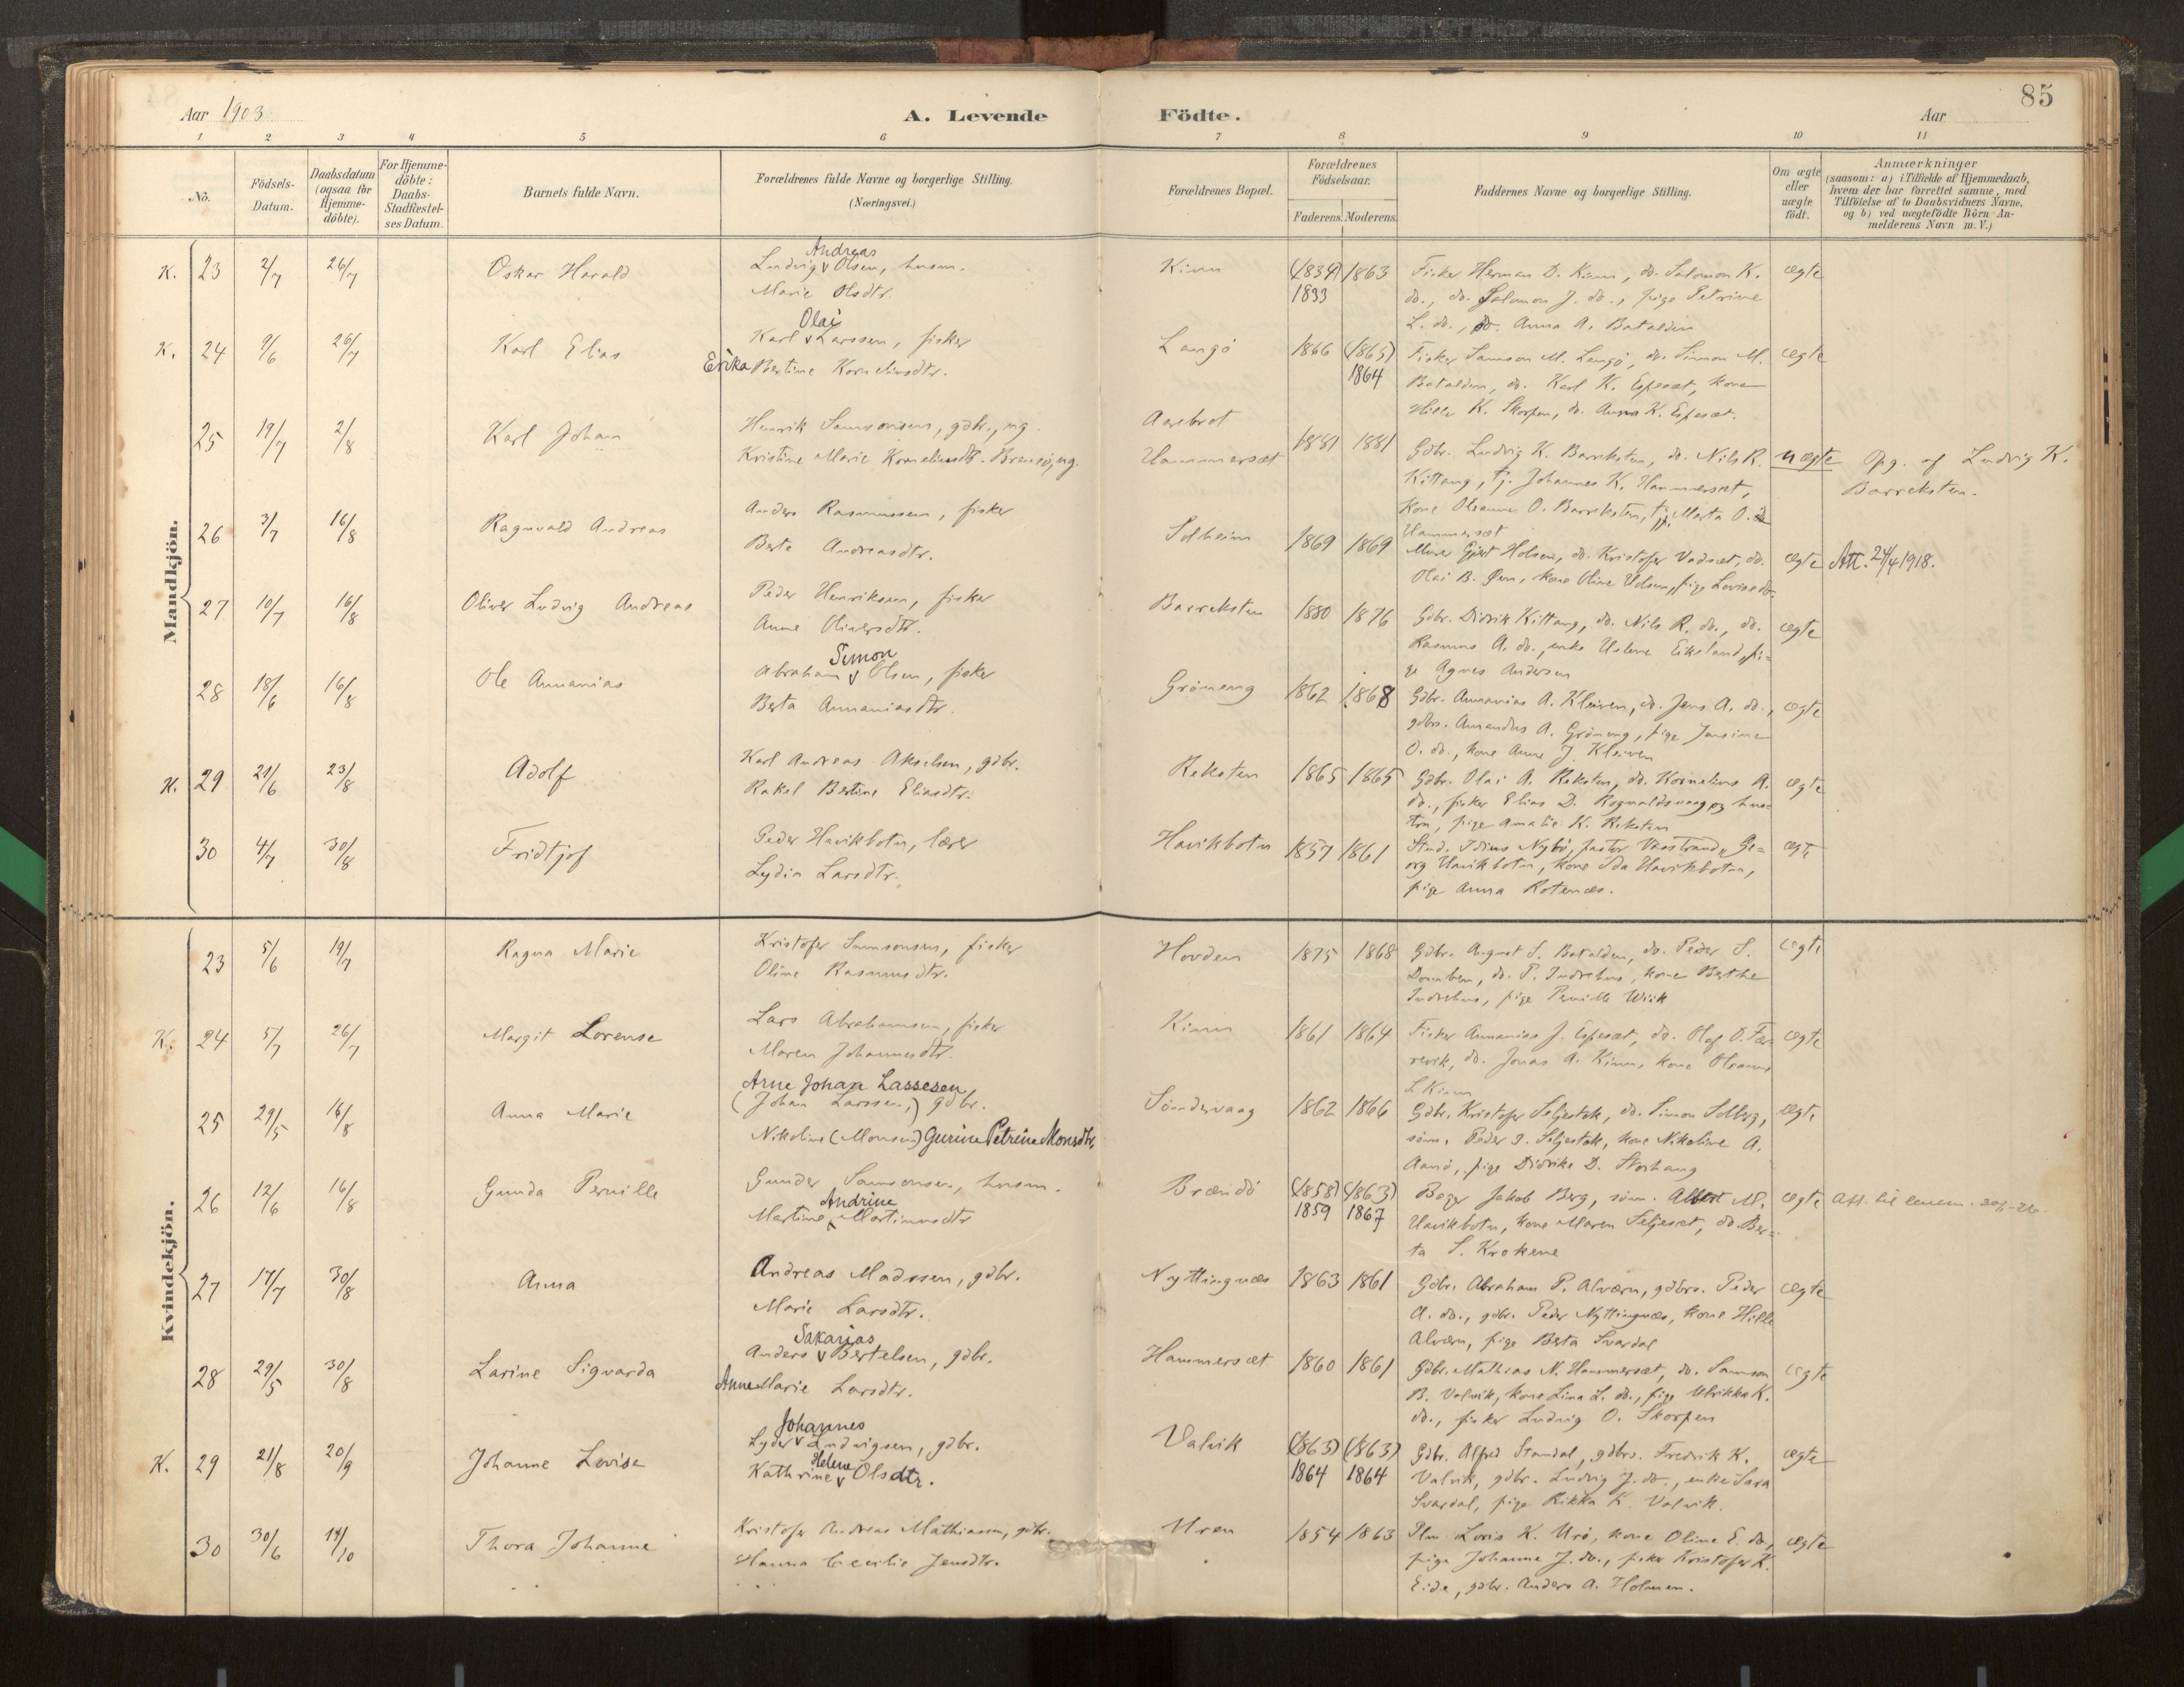 85
Aar 1903
A. Levende Födte.
Aar
1 2 3 4 5 6 7 8 9 10 11
No.
Födsels-Datum.
Daabsdatum (ogsaa for Hjemme-döbte).
For Hjemme-döbte: Daabs-Stadfæstel-ses Datum.
Barnets fulde Navn.
Forældrenes fulde Navne og borgerlige Stilling. (Næringsvei.)
Forældrenes Bopæl.
Forældrenes Födselsaar.
Faderens. Moderens.
Faddernes Navne og borgerlige Stilling.
Om ægte eller uægte födt.
Anmærkninger
(saasom: a) i Tilfælde af Hjemmedaab,
hvem der har forrettet samme, med
Tilföielse af to Daabsvidners Navne,
og b) ved uægtefödte Börn An-
melderens Navn m. V.)
Mandkjön.
K. 23 2/7 26/7 Oskar Harald
Andreas
Ludvig v Olsen, husm.
Marie Olsdtr.
Kinn (1834) 1863
1833
Fisker Herman D. Kinn, do. Salomon K.
do., do. Salomon J. do., pige Petrine
L. do., do. Anna A. Batalden
ægte
K. 24 9/6 26/7 Karl Elias
Olai
Karl v Larssen, fisker
Erika Bertine Kornelinsdtr.
Langö 1866 (1865)
1864
Fisker Samson M. Langö, do. Simon M.
Batalden, do. Karl K. Espeset, kone
Hille K. Skorpen, do. Anna K. Espeset.
ægte
25 19/7 2/8 Karl Johan
Henrik Samsonsen, gdbr., ug.
Kristine Marie Korneliusdtr. Bremsö, ug.
Aarebrot
Hammerset 1881 1881
Gdbr. Ludvig K. Barreksten, do. Nils R.
Kittang, tj. Johannes K. Hammerset,
kone Oleanna O. Barreksten, tj. Marta O.
Hammerset
uægte
Opg. af Ludvig K.
Barreksten.
26 3/7 16/8 Ragnvald Andreas
Anders Rasmussen, fisker
Berte Andreasdtr.
Solheim 1869 1869
Murer Gjert Holsen, do. Kristofer Vadset, do.
Olai B. Öen, kone Oline Holsen, pige Lovise do.
ægte
Att. 24/4 1918.
27 10/7 16/8 Oliver Ludvig Andreas
Peder Henriksen, fisker
Anne Oliversdtr.
Barreksten 1880 1876
Gdbr. Didrik Kittang, do. Nils R. do., do.
Rasmus A. do., enke Helene Eikeland, pi-
ge Agnes Andersen
ægte
28 18/6 16/8 Ole Annanias
Simon
Abraham v Olsen, fisker
Berta Annaniasdtr.
Gröneng 1862 1868
Gdbr. Annanias A. Kleiven, do. Jens A. do.,
gdbrs. Amandus A. Gröneng, pige Jensine
O. do., kone Anne J. Kleiven
ægte
K. 29 21/6 23/8 Adolf
Karl Andreas Akselsen, gdbr.
Rakel Bertine Eliasdtr.
Reksten 1865 1865
Gdbr. Olai A. Reksten, do. Kornelius A.
do., fisker Elias D. Rognaldsvaag og hus-
tru, pige Amalie K. Reksten
ægte
30 4/7 30/8 Fridtjof
Peder Havikbotn, lærer
Lydia Larsdtr.
Havikbotn 1857 1861
Stud. Idius Nybö, pastor Vaastrand, Ge-
org Havikbotn, kone Ida Havikbotn,
pige Anna Rotenes.
ægte
Kvindekjön.
23 5/6 19/7 Ragna Marie
Kristofer Samsonsen, fisker
Oline Rasmusdtr.
Hovden 1875 1868
Gdbr. August S. Batalden, do. Peder S.
Domben, do. P. Indrehus, kone Berthe
Indrehus, pige Pernille Wiik
ægte
K. 24 5/7 26/7 Margit Lorense
Lars Abrahamsen, fisker
Maren Johannesdtr.
Kinn 1861 1864
Fisker Annanias J. Espeset, do. Olaf O. Fæ-
revik, do. Jonas A. Kinn, kone Oleanna
S. Kinn
ægte
25 29/5 16/8 Anna Marie
Arne Johan Lassesen,
(Johan Larssen,) gdbr.
Nikoline (Monsen) Gurine Petrine Monsdtr.
Söndervaag 1862 1866
Gdbr. Kristofer Seljestok, do. Simon Solberg,
sönn. Peder I. Seljestok, kone Nikoline A.
Aanö, pige Didrike D. Storhaug
ægte
26 12/6 16/8 Gunda Pernille
Gunder Samsonsen, husm.
Andrine
Martine Martinusdtr
Brændö (1858) (1863)
1859 1867
Bager Jakob Berg, sönn. Albert M.
Havikbotn, kone Maren Seljeset, do. Ber-
ta S. Krokene
ægte
Att. til
27 17/7 30/8 Anna
Andreas Madssen, gdbr.
Marie Larsdtr.
Nyttingnes 1863 1861
Gdbr. Abraham P. Alværn, gdbrs. Peder
A. do., gdbr. Peder Nyttingnes, kone Hille
Alværn, pige Berta Svardal
ægte
28 29/5 30/8 Larine Sigvarda
Sakarias
Anders v Bertelsen, gdbr.
Anne Marie Larsdtr.
Hammerset 1860 1861
Gdbr. Mathias N. Hammerset, do. Samson
B. Valvik, kone Lina L. do., pige Ulrikka K.
do., fisker Ludvig O. Skorpen
ægte
K. 29 21/8 20/9 Johanne Lovise
Johannes
Lyder v Ludvigsen, gdbr.
Helene
Kathrine v Olsdtr.
Valvik (1863) (1863)
1864 1864
Gdbr. Alfred Standal, gdbrs. Fredrik K.
Valvik, gdbr. Ludvig J. do., enke Sara
Svardal, pige Rikka K. Valvik.
ægte
30 30/6 14/10 Thora Johanne
Kristofer Andreas Mathiassen, gdbr.
Hanna Cecilie Jensdtr.
Uren 1854 1863
Plm. Loris K. Urö, kone Oline E. do,
pige Johanne J. do., fisker Kristofer K.
Eide, gdbr. Anders A. Holmen.
ægte